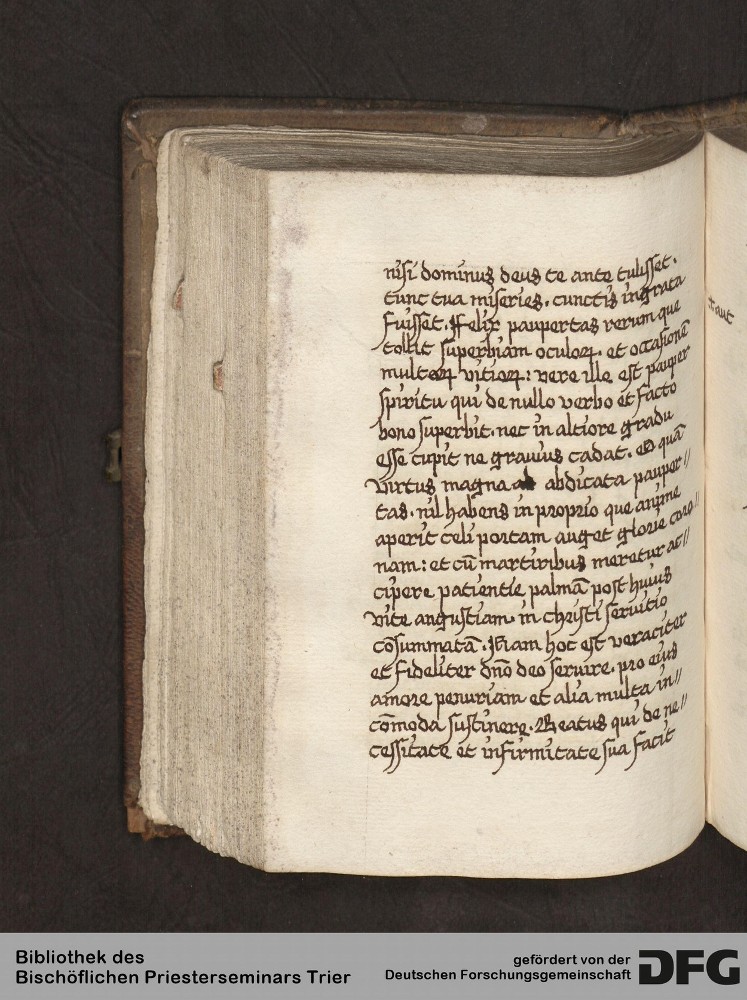 nisi dominus deus te ante tulisset.
tunc tua miseries. cunctis ingrata
fuisset. Felix paupertas rerum que
tollit superbiam oculoꝝ. et occasionē
multoꝝ vitioꝝ: vere ille est pauper
spiritu qui de nullo verbo et facto
bono superbit. nec in altiore gradu
esse cupit ne gravius cadat. O quā
virtus magna abdicata pauper//
tas. nil habens in proprio que anime
aperit celi portam auget glorie coro//
nam: et cū martiribus meretur ac//
cipere patientie palmā post huius
vite angustiam. in christi servitio
cōsummatā. Nam hoc est veraciter
et fideliter dn̄o deo servire. pro eius
amore penuriam et alia multa in//
cōmoda sustinere. Beatus qui de ne//
cessitate et infirmitate sua facit
t aut
Bibliothek des
Bischöflichen Priesterseminars Trier
gefördert von der
Deutschen Forschungsgemeinschaft
DFG